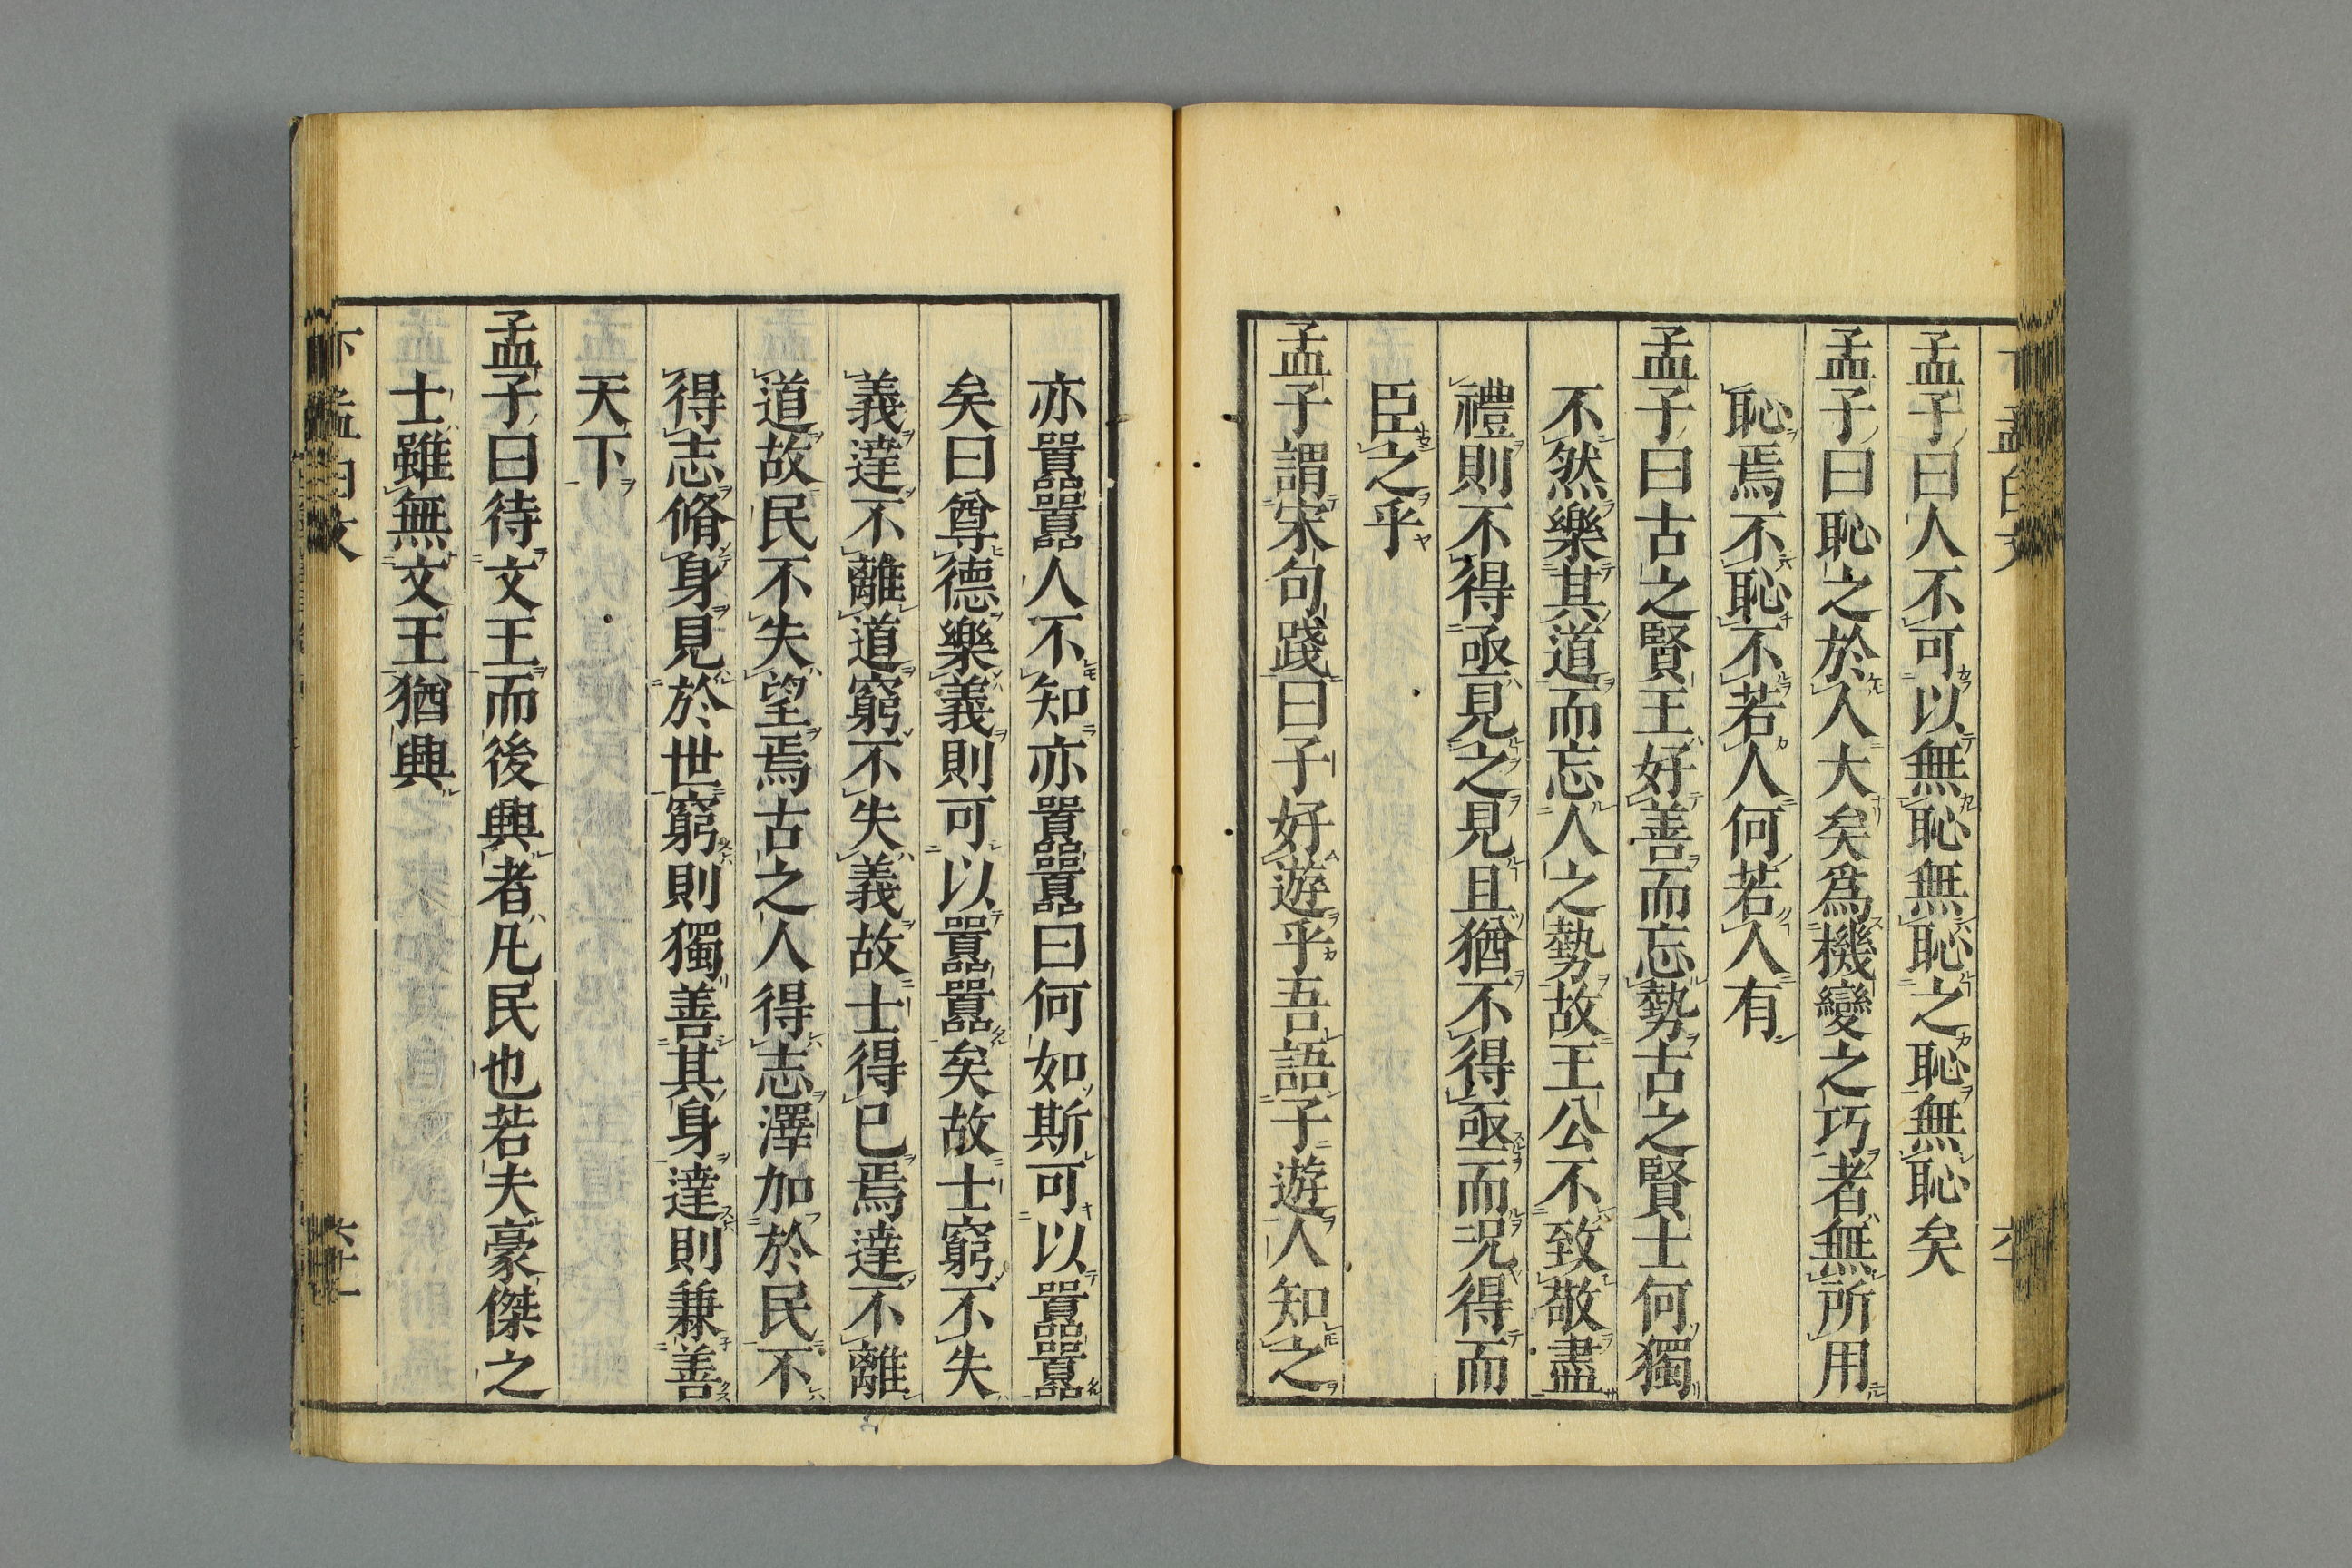 孟子曰人不可以無恥無恥之恥無恥矣
孟子曰恥之於人大矣爲機變之巧者無所用
恥焉不恥不若人何若人有
孟子曰古之賢王好善而忘勢古之賢士何獨
不然樂其道而忘人之勢故王公不致敬盡
禮則不得亟見之見且猶不得亟而況得而
臣之乎
孟子謂宋句踐曰子好遊乎吾語子遊人知之
亦囂囂人不知亦囂囂曰何如斯可以囂囂
矣曰尊德樂義則可以囂囂矣故士窮不失
義達不離道窮不失義故士得己焉達不離
道故民不失望焉古之人得志澤加於民不
得志脩身見於世窮則獨善其身達則兼善
天下
孟子曰待文王而後興者凡民也若夫豪傑之
士雖無文王猶興